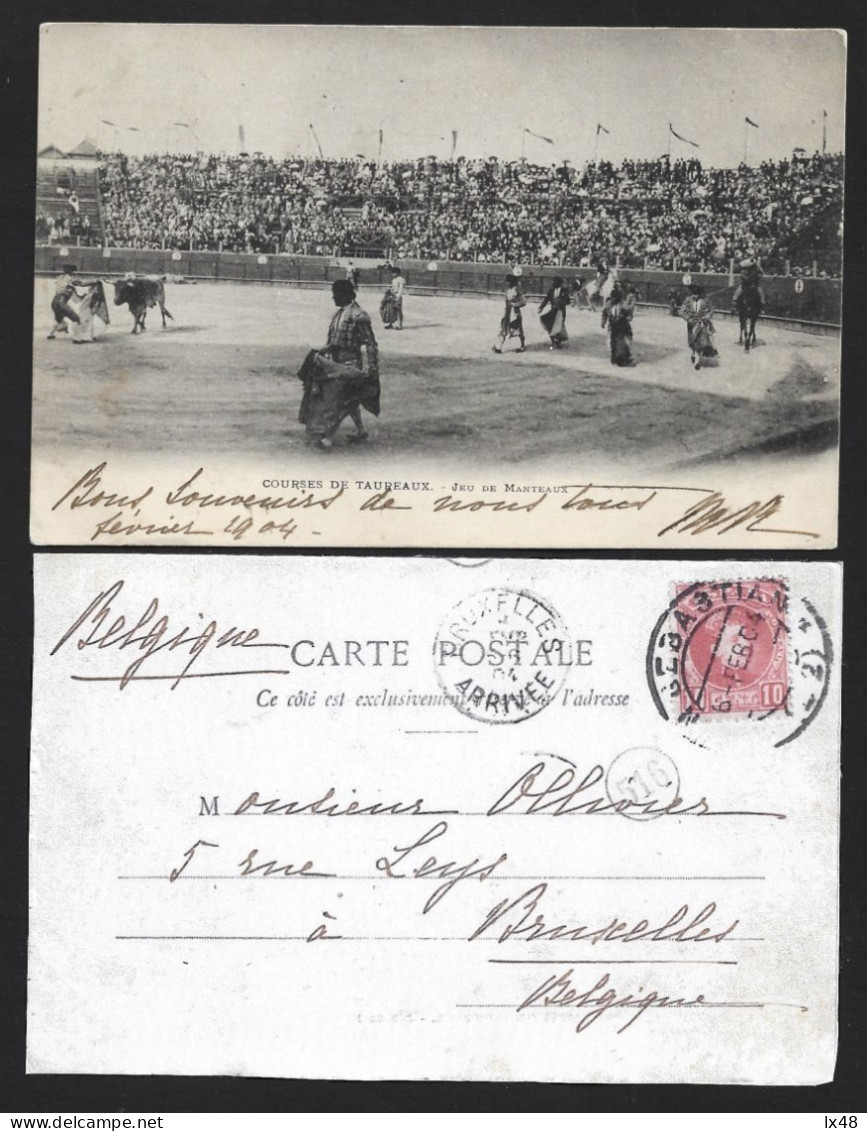 COURSES DE TAUREAUX. - JEU DE MANTEAUX
Bons Souvenirs de nous tous
février 1904 -
Belgique
CARTE POSTALE
Ce côté est exclusivement réservé à l'adresse
BRUXELLES
ARRIVÉE
SEBASTIAN
6-FEB 04
10
516
Monsieur Ollivier
5 rue Leys
à Bruxelles
Belgique
delcampe.net
lx48